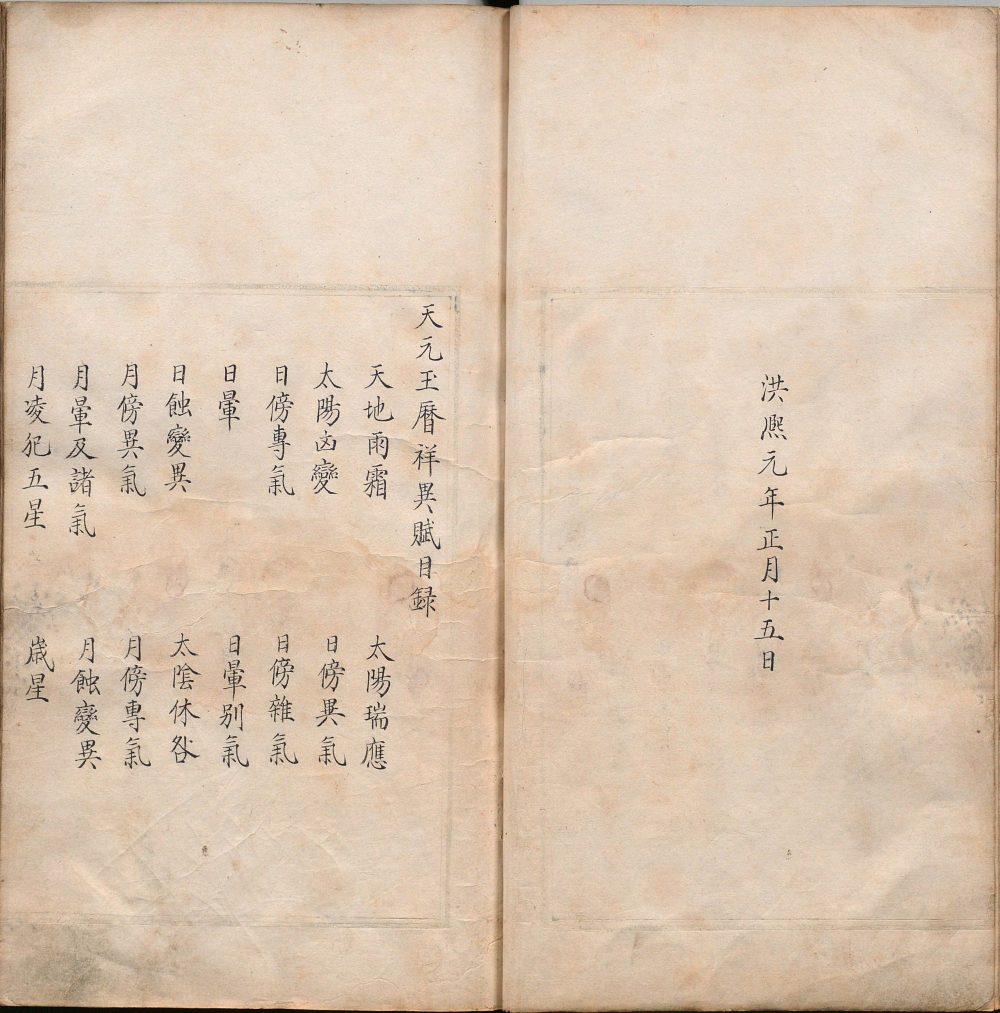 洪熈元年正月十五日
天元玉曆祥異賦目録
天地雨霜
太陽瑞應
太陽凶變
日傍異氣
日傍專氣
日傍雜氣
日暈
日暈别氣
日蝕變異
太陰休咎
月傍異氣
月傍專氣
月暈及諸氣
月蝕變異
月凌犯五星
歲星